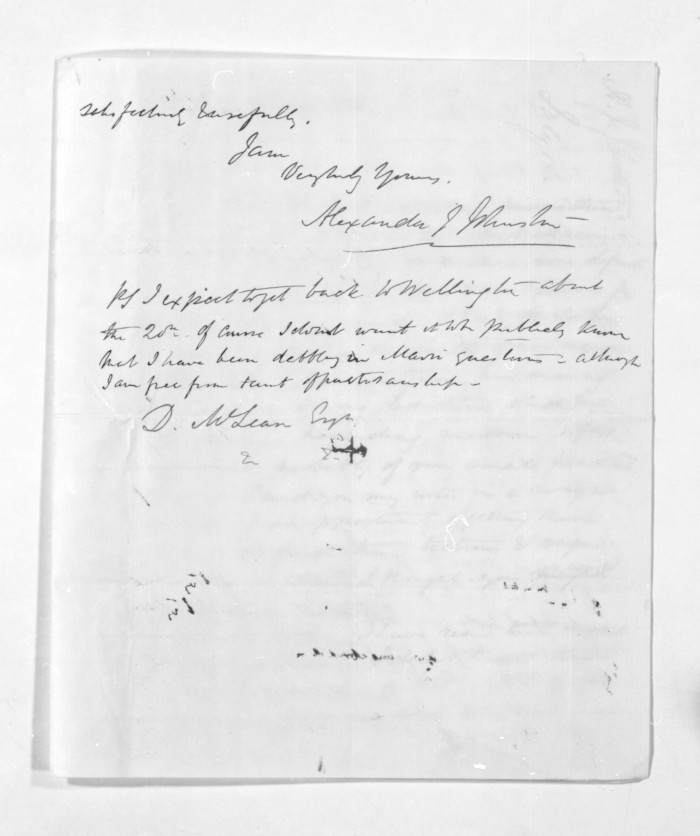 satisfactorily & usefully.
I am
Very truly Yours.
Alexander J Johnston
PS I expect to get back to Wellington about
the 20th. Of course I don't want it to be publicly known
that I have been dabbling in Maori questions – although
I am free from taint of partisanship –
D. McLean Esqr
&